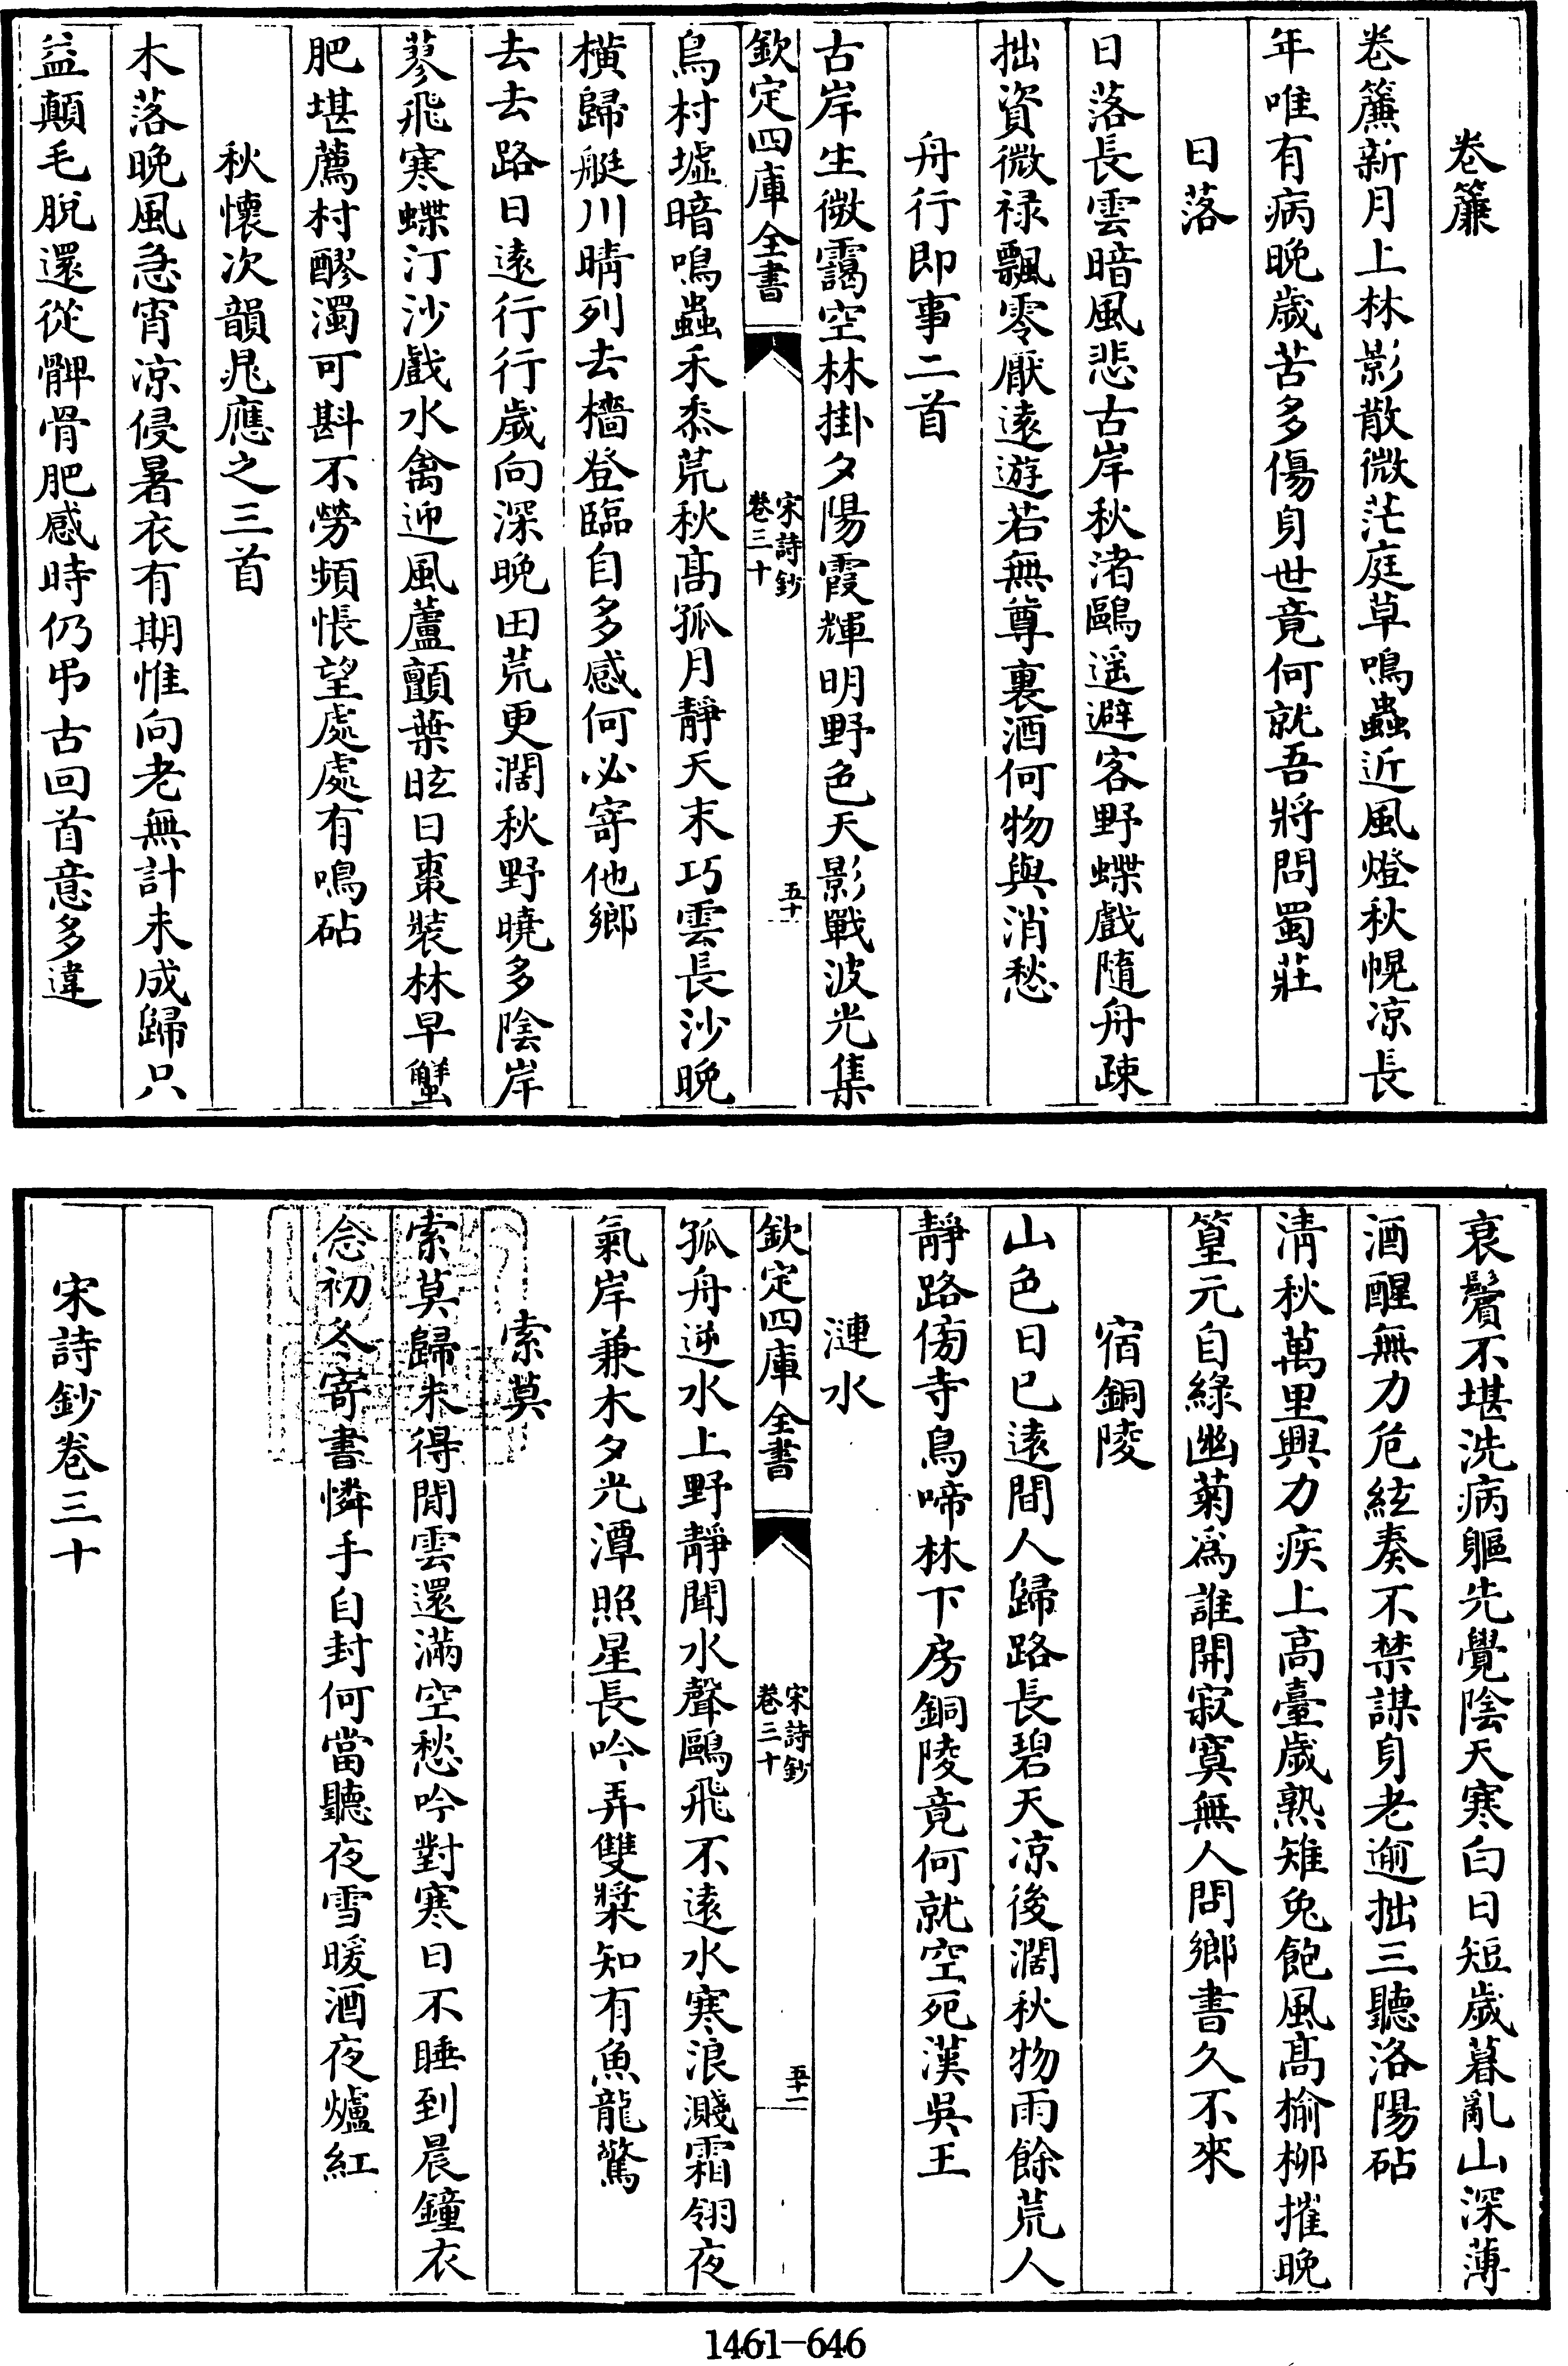 卷簾
卷簾新月上林影散微茫庭草鳴蟲近風燈秋幌凉長
年唯有病晚歲苦多傷身世竟何就吾將問蜀莊
日落
日落長雲暗風悲古岸秋渚鷗遥避客野蝶戲隨舟疎
拙資微禄飄零厭遠遊若無尊裏酒何物與消愁
舟行即事二首
古岸生微靄空林掛夕陽霞輝明野色天影戰波光集
欽定四庫全書
宋詩鈔
卷三十
五十
鳥村墟暗鳴蟲禾黍荒秋高孤月靜天末巧雲長沙晚
橫歸艇川晴列去檣登臨自多感何必寄他鄉
去去路日遠行行歲向深晚田荒更濶秋野曉多陰岸
蓼飛寒蝶汀沙戲水禽迎風蘆顫葉眩日棗裝林早蟹
肥堪薦村醪濁可斟不勞頻悵望處處有鳴砧
秋懷次韻晁應之三首
木落晚風急宵凉侵暑衣有期惟向老無計未成歸只
益顛毛脫還從髀骨肥感時仍弔古回首意多違
衰鬢不堪洗病軀先覺陰天寒白日短歲暮亂山深薄
酒醒無力危絃奏不禁謀身老逾拙三聽洛陽砧
清秋萬里興力疾上高臺歲熟雉兔飽風高榆柳摧晚
篁元自綠幽菊為誰開寂寞無人問鄉書久不來
宿銅陵
山色日已遠間人歸路長碧天凉後濶秋物雨餘荒人
靜路傍寺鳥啼林下房銅陵竟何就空死漢吳王
漣水
欽定四庫全書
宋詩鈔
卷三十
五十一
孤舟逆水上野靜聞水聲鷗飛不遠水寒浪濺霜翎夜
氣岸兼木夕光潭照星長吟弄雙槳知有魚龍驚
索莫
索莫歸未得閒雲還滿空愁吟對寒日不睡到晨鐘衣
念初冬寄書憐手自封何當聽夜雪暖酒夜爐紅
宋詩鈔卷三十
1461-646